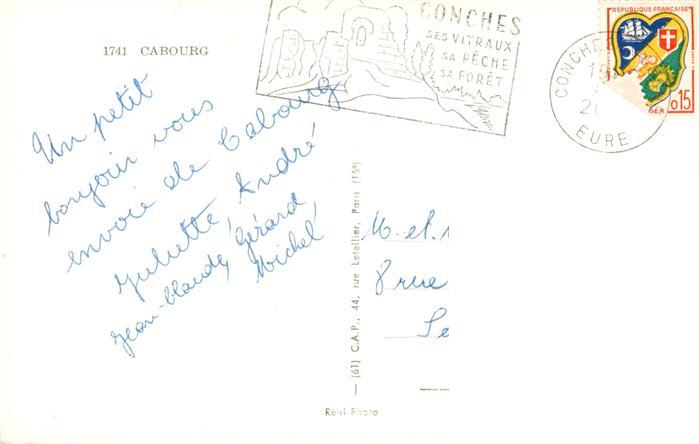 1741 CABOURG
CONCHES
SES VITRAUX
SA PÊCHE
SA FORÊT
REPUBLIQUE FRANÇAISE
0,15
CONCHE
EURE
Un petit
bonjour vous
envoie de Cabourg
Juliette, André
Jean-Claude, Gérard,
Michel
M. et
8 rue
(61) C.A.P., 44, rue Letellier, Paris (15e)
Réal-Photo